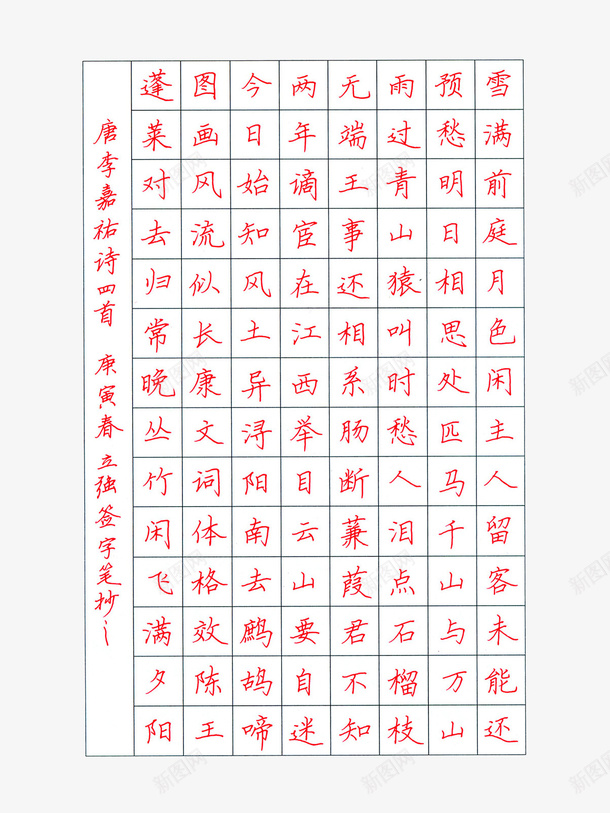 雪满前庭月色闲主人留客未能还
预愁明日相思处匹马千山与万山
雨过青山猿叫时愁人泪点石榴枝
无端王事还相系肠断蒹葭君不知
两年谪宦在江西举目云山要自迷
今日始知风土异浔阳南去鹧鸪啼
图画风流似长康文词体格效陈王
蓬莱对去归常晚丛竹闲飞满夕阳
唐李嘉祐诗四首 庚寅春立强签字笔抄之
新图网